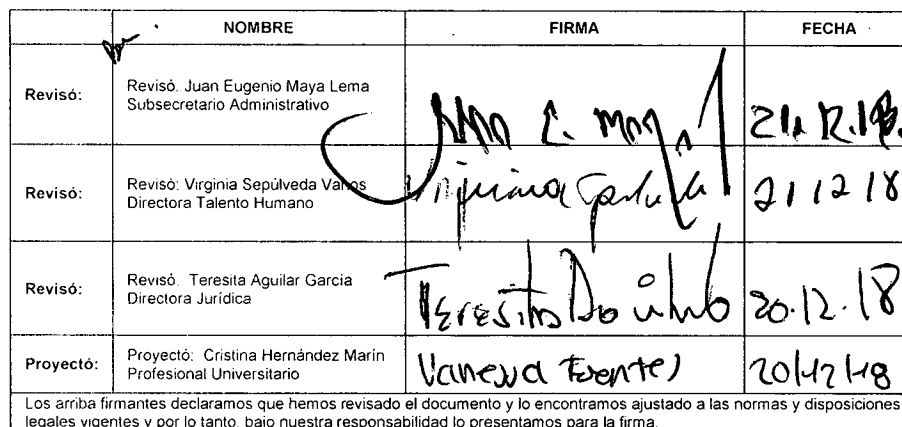 NOMBRE FIRMA FECHA
Revisó: Revisó. Juan Eugenio Maya Lema
Subsecretario Administrativo
21.12.18.
Revisó: Revisó: Virginia Sepúlveda Vahos
Directora Talento Humano
21 12 18
Revisó: Revisó. Teresita Aguilar García
Directora Jurídica
Teresita 20.12.18
Proyectó: Proyectó: Cristina Hernández Marín
Profesional Universitario
Vanessa Fuentes 20/12/18
Los arriba firmantes declaramos que hemos revisado el documento y lo encontramos ajustado a las normas y disposiciones
legales vigentes y por lo tanto, bajo nuestra responsabilidad lo presentamos para la firma.